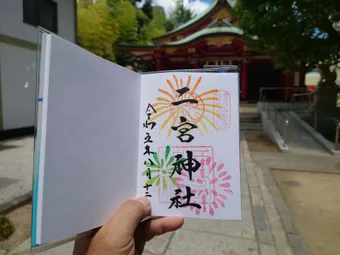 二宮神社
令和五年八月十三日